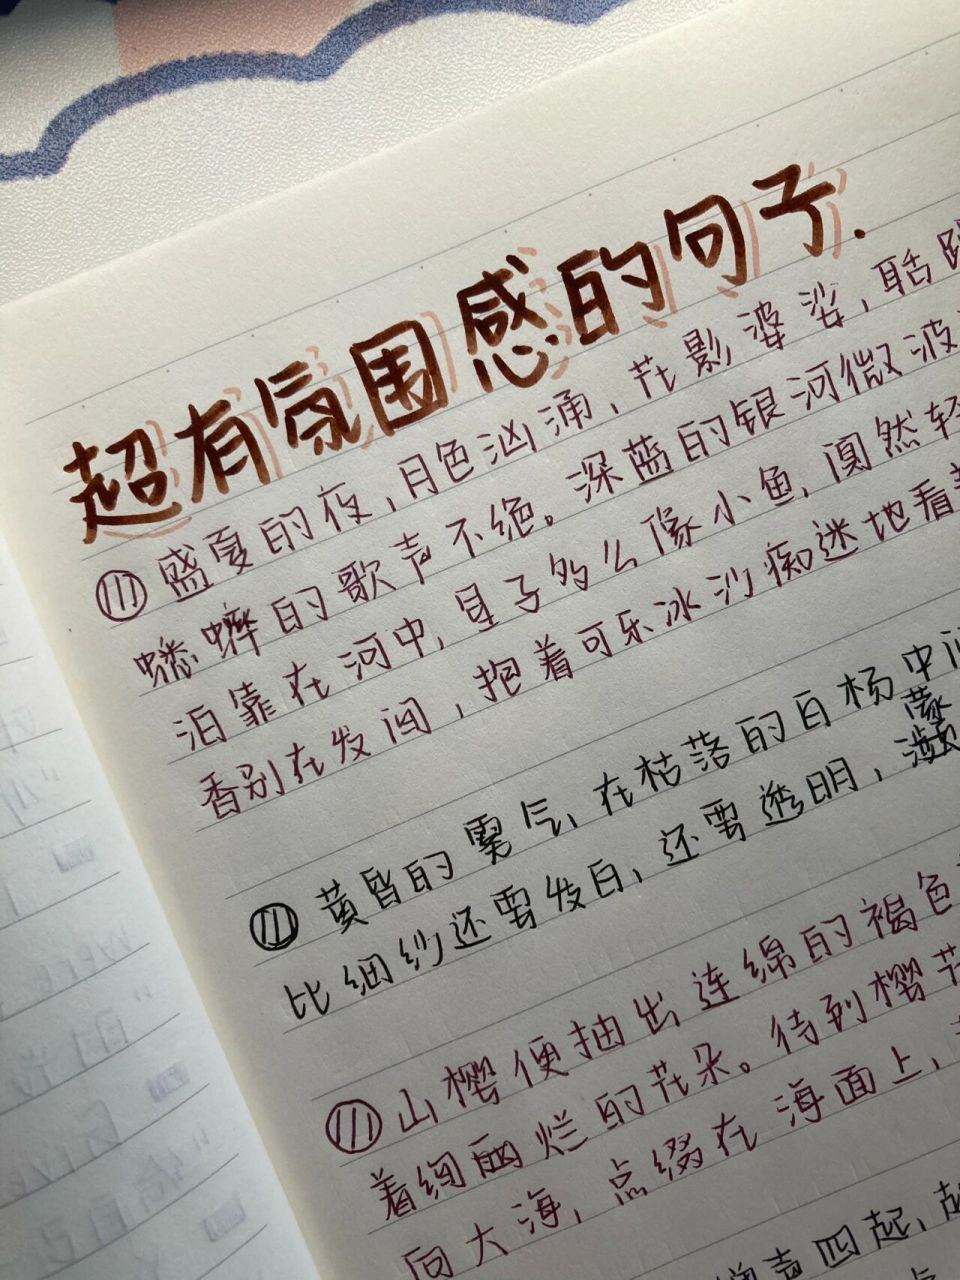 超有氛围感的句子.
⑪ 盛夏的夜,月色汹涌、花影婆娑,聒
蟋蟀的歌声不绝。深蓝的银河微波
泊靠在河中,星子多么像小鱼,倏然轻
香别在发间,抱着可乐冰沙痴迷地看着
⑪ 黄昏的雾气,在枯落的白杨中间
比细纱还要发白,还要透明,濛
⑪ 山樱便抽出连绵的褐色
着绚丽烂的花朵。待到樱花
向大海,点缀在海面上,
声四起,